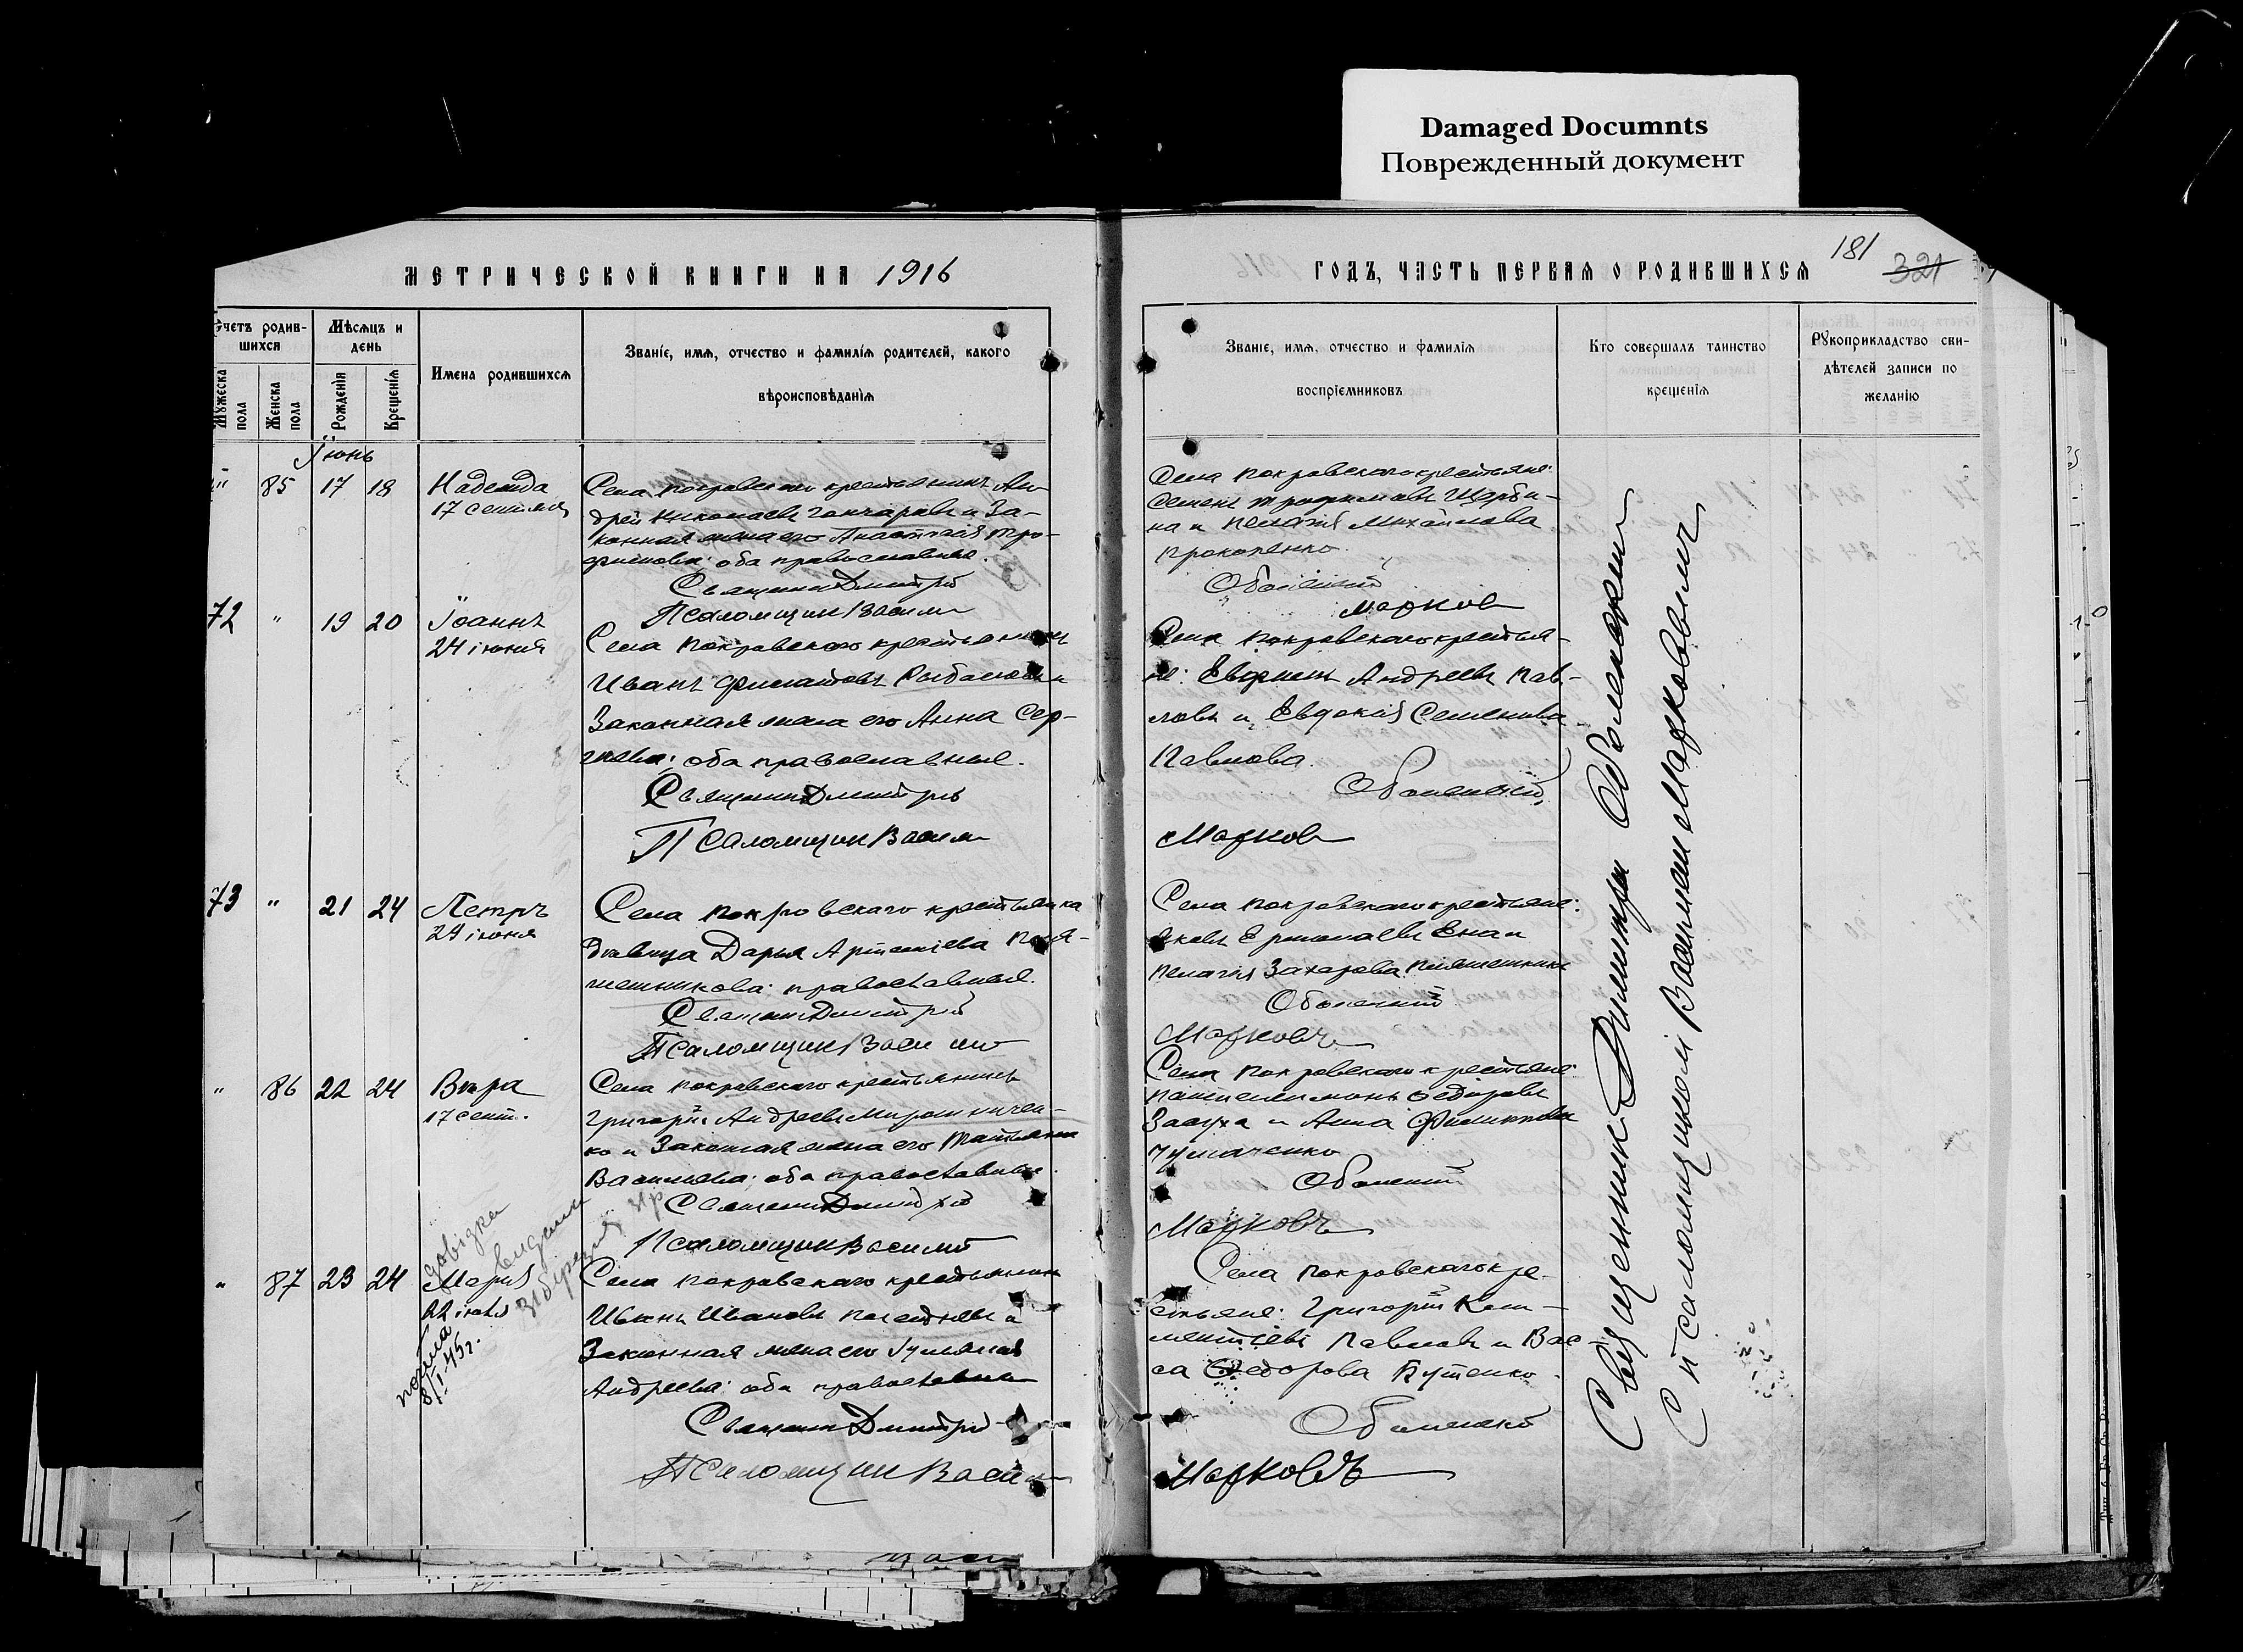 Damaged Documnts
Поврежденный документ
МЕТРИЧЕСКОЙ КНИГИ НА 1916
ГОДЪ, ЧАСТЬ ПЕРВАЯ О РОДИВШИХСЯ
181
321
Счетъ родив-
шихся
Мѣсяцъ и
день
Мужеска
пола
Женска
пола
Рожденія
Крещенія
Имена родившихся
Званіе, имя, отчество и фамилія родителей, какого
вѣроисповѣданія
Званіе, имя, отчество и фамилія
воспріемниковъ
Кто совершалъ таинство
крещенія
Рукоприкладство сви-
дѣтелей записи по
желанію
Іюнь
" 85 17 18 Надежда
17 сентября
Села Покровскаго крестьянинъ Ан-
дрей Николаевъ Гончаровъ и за-
конная жена его Анастасія Тро-
фимова; оба православные.
Священник Дмитрій
Псаломщик Васили
Села Покровскаго крестьяне:
Семенъ Трофимовъ Щерби-
на и Пелагія Михайлова
Прокопенко.
Оболенскій
Марков
72 " 19 20 Іоаннъ
24 іюня
Села Покровскаго крестьянинъ
Иванъ Филатовъ и
Законная жена его Анна Сер-
гиева; оба православные.
Священник Дмитрій
Псаломщик Васили
Села Покровскаго крестья-
не: Андреевъ Пав-
ловъ и Евдокія Семенова
Павлова.
Оболенскій
Марков
73 " 21 24 Петръ
29 іюня
Села Покровскаго крестьянка
дѣвица Дарья
православная.
Священник Дмитрій
Псаломщик Васили
Села Покровскаго крестьяне:
Яковъ Ермолаевъ
Пелагія Захарова
Оболенскій
Марковъ
" 86 22 24 Вѣра
17 сент.
Села Покровскаго крестьянинъ
Григорій Андреевъ Мирошничен-
ко и Законная жена его Татьяна
Васильева; оба православные.
Священник Дмитрій
Псаломщик Василій
Села Покровскаго крестьяне:
Пантелеимонъ Федоровъ
и Анна Филиппова
Чумаченко
Оболенскій
Марковъ
" 87 23 24 Марія
22 іюля
довідка
видана
8/I.45г.
Села Покровскаго крестьянинъ
Иванъ Ивановъ и
Законная жена его
Андреева; оба православные
Священник Дмитрій
Псаломщик Васили
Села Покровскаго кре-
стьяне: Григорій
Павловъ и Вас-
са Федорова Бутенко.
Оболенскій
Марковъ
Священник Димитрій Оболенский
С псаломщиком Василіем Марковымъ